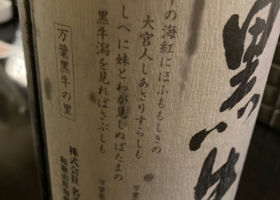 黒牛
の海紅にほふももしきの
大宮人しあさりすらしも
万葉
しべに妹とわが見しぬばたまの
黒牛潟を見ればさぶしも
万葉
万葉黒牛の里
株式会社 名
和歌山県海